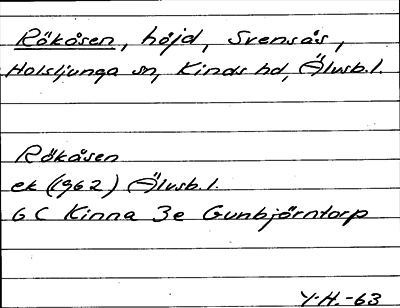 Rökåsen, höjd, Svensås,
Holsljunga sn, Kinds hd, Älvsb. l.
Rökåsen
ek (1962) Älvsb. l.
6 C Kinna 3e Gunbjörntorp
Y.H.-63